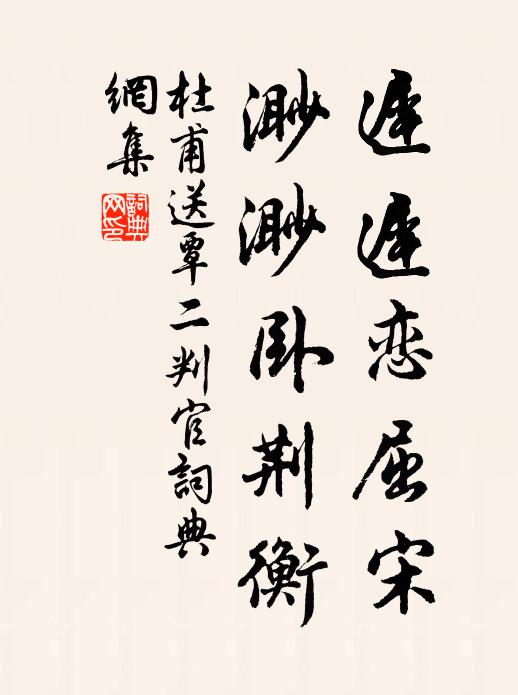 遲遲恋屈宋
渺渺卧荆衡
杜甫送覃二判官詞典
網集
詞典网印